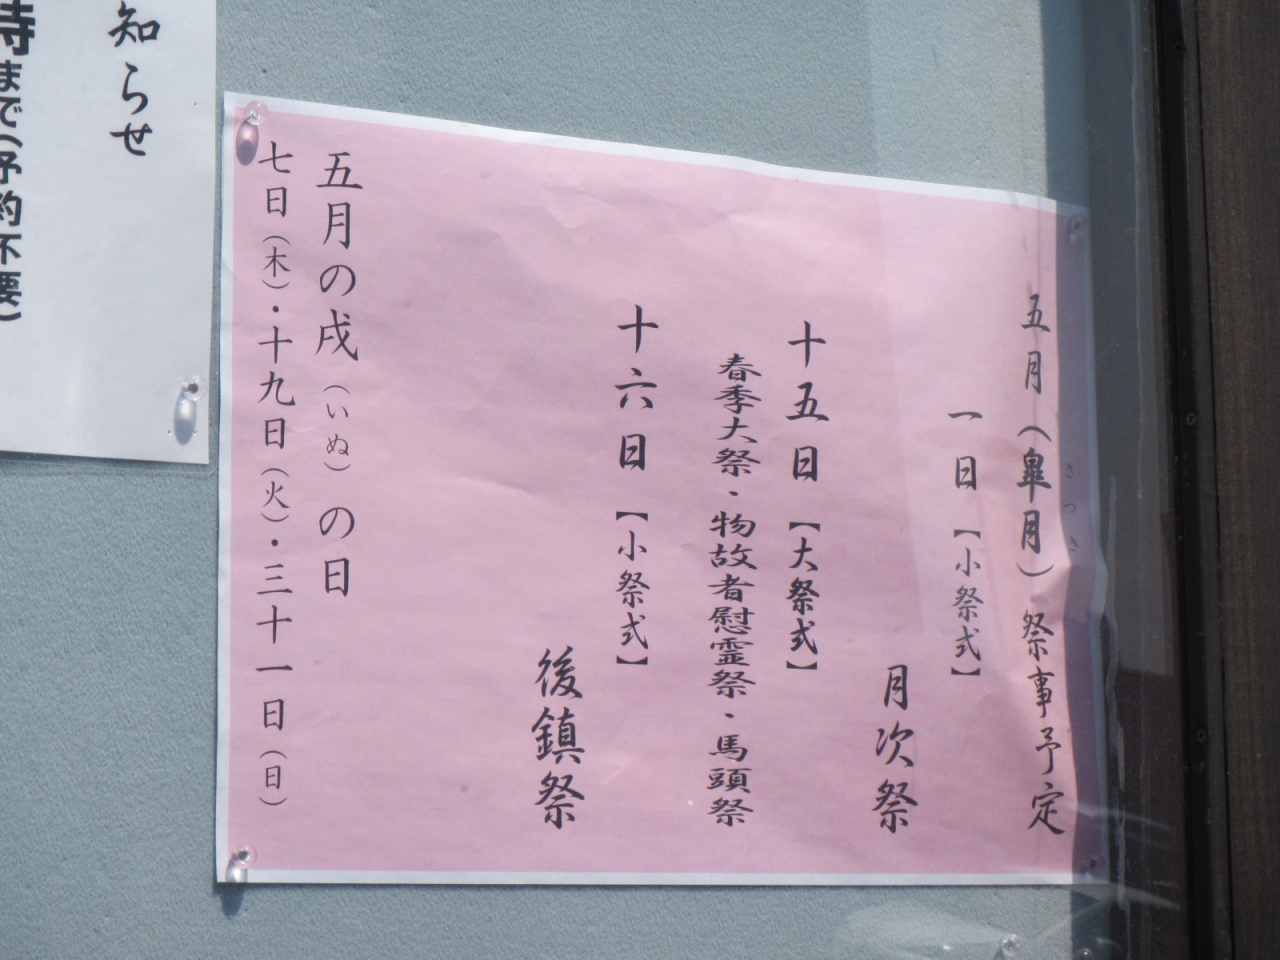 五月（皐月）祭事予定
さつき
一日【小祭式】
月次祭
十五日【大祭式】
春季大祭・物故者慰霊祭・馬頭祭
十六日【小祭式】
後鎮祭
五月の戌（いぬ）の日
七日（木）・十九日（火）・三十一日（日）
知らせ
時まで（予約不要）